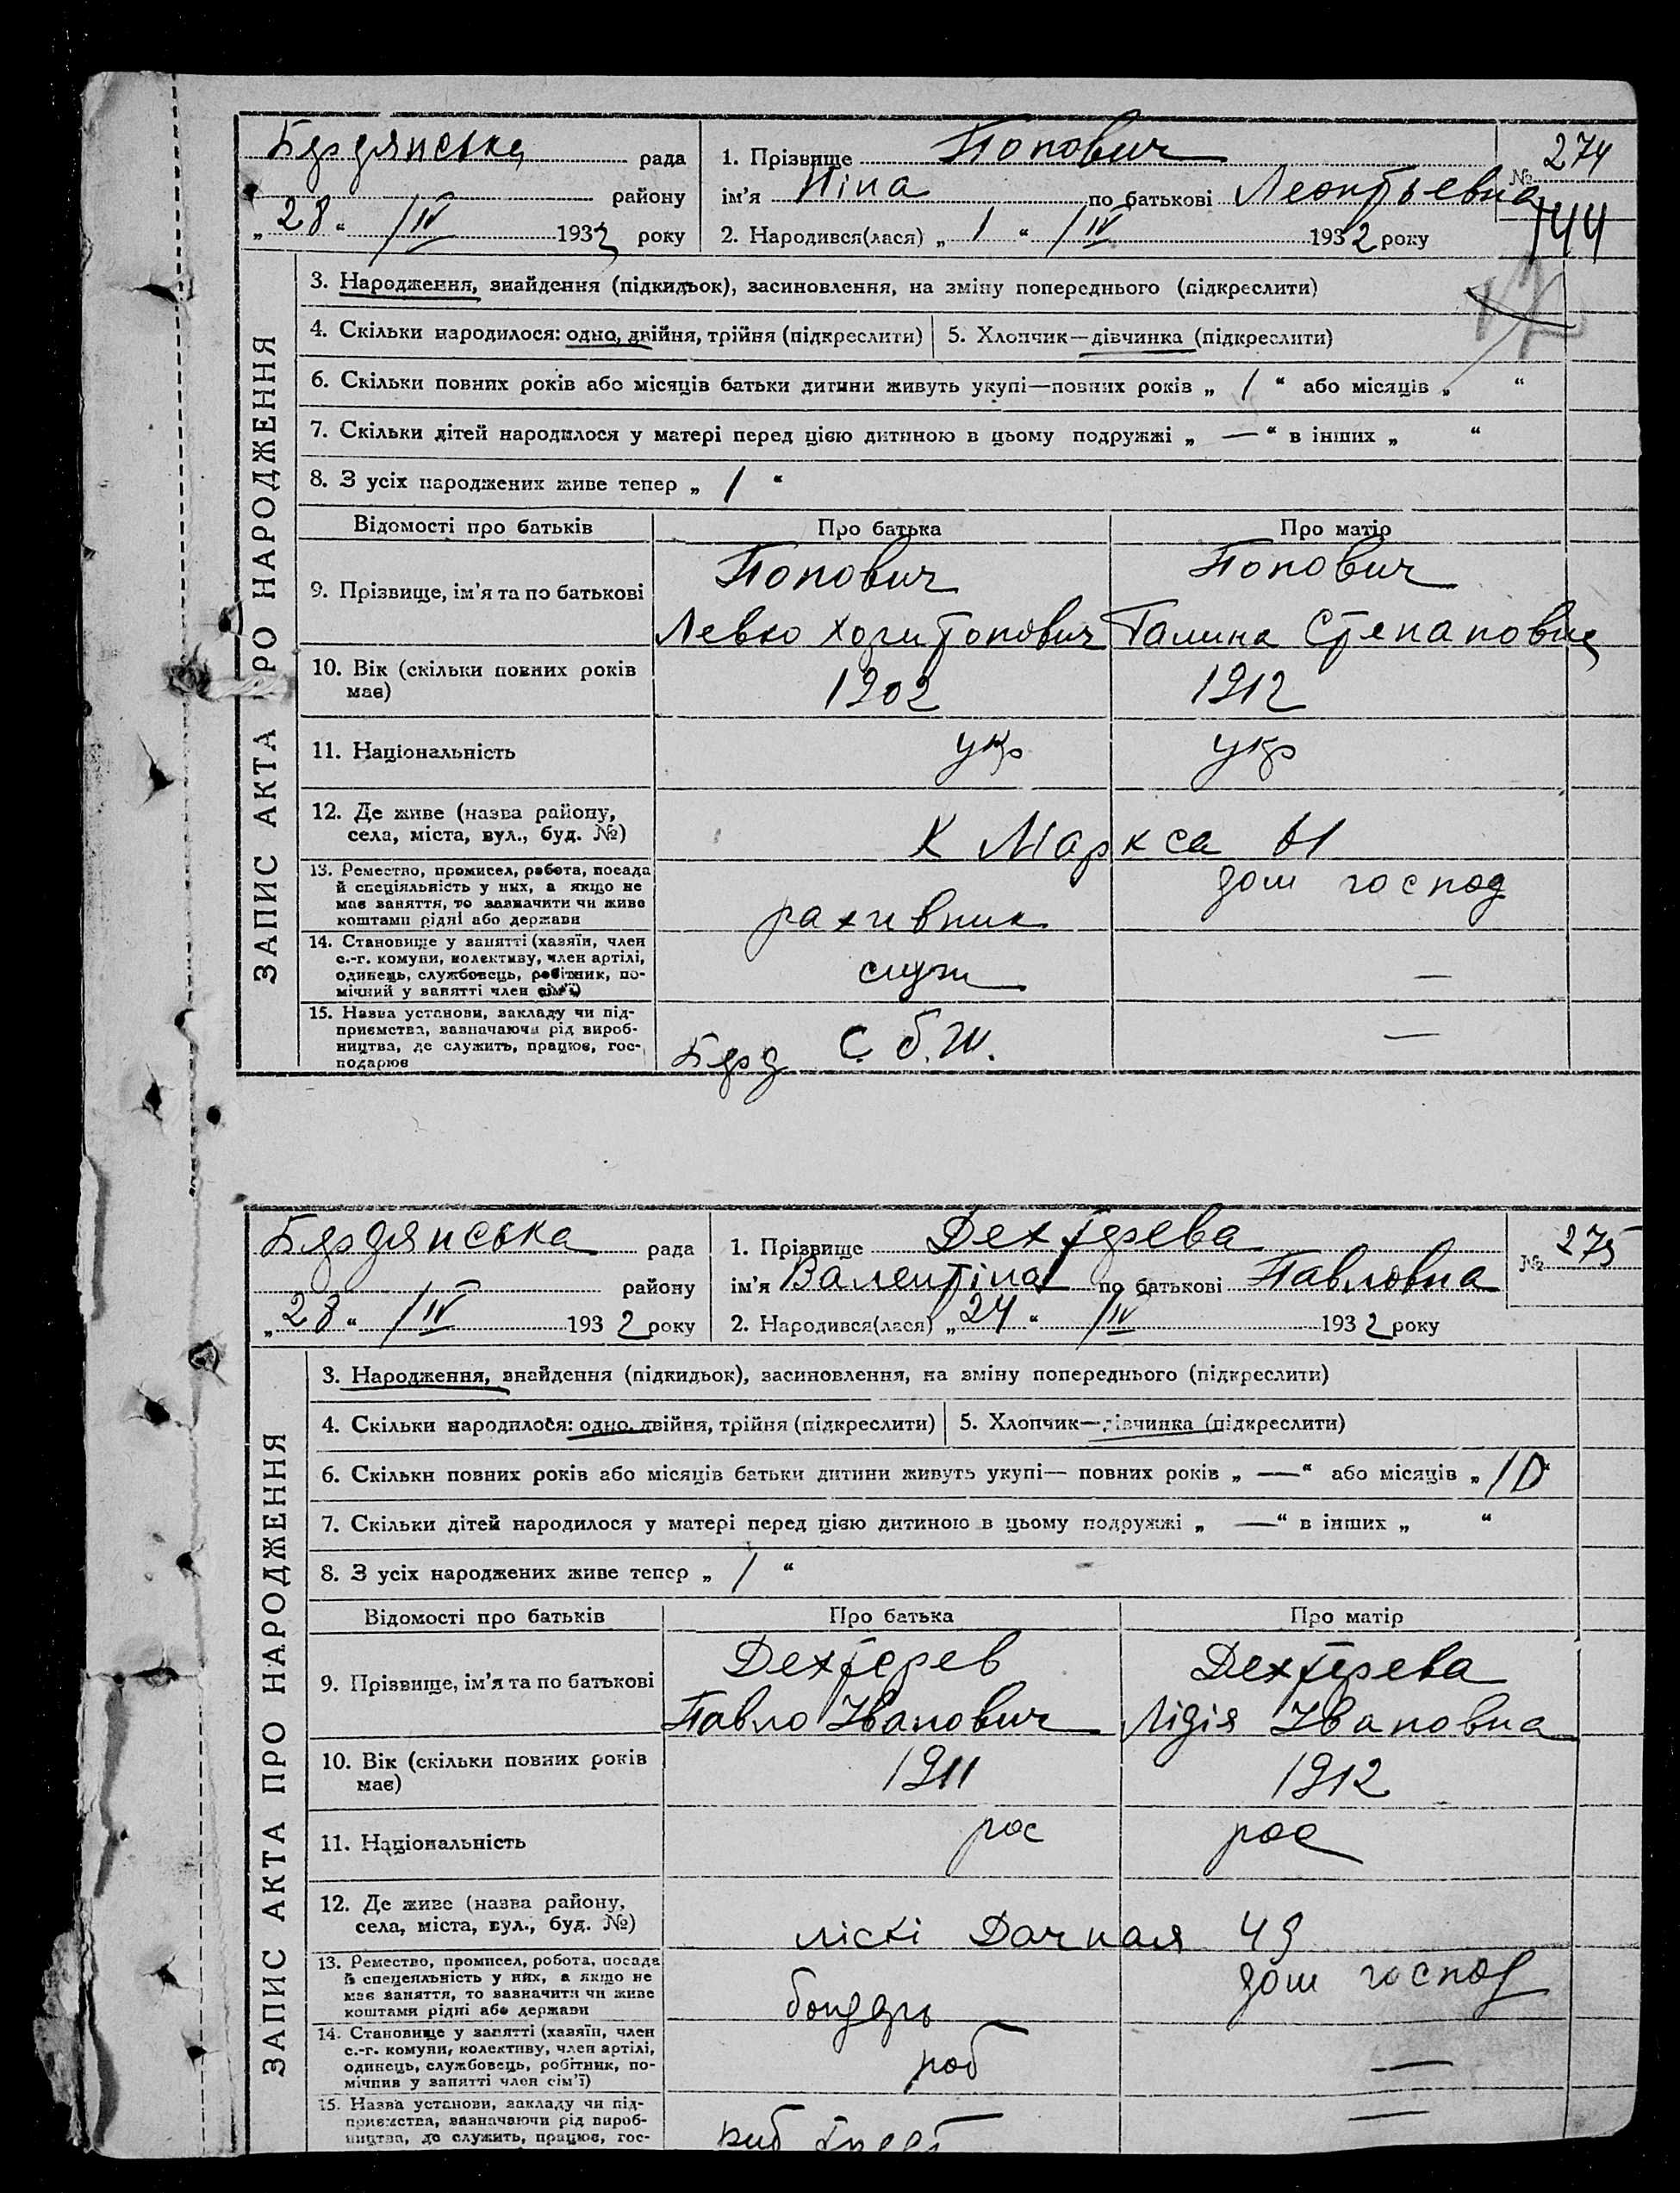 Бердянська рада
району
„28“ IV 1932 року
1. Прізвище Попович
ім’я Ніна по батькові Леонтьевна
2. Народився(лася) „1“ IV 1932 року
№ 274
744
ЗАПИС АКТА ПРО НАРОДЖЕННЯ
3. Народження, знайдення (підкидьок), засиновлення, на зміну попереднього (підкреслити)
4. Скільки народилося: одно, двійня, трійня (підкреслити)
5. Хлопчик—дівчинка (підкреслити)
6. Скільки повних років або місяців батьки дитини живуть укупі—повних років „ 1 “ або місяців „ “
7. Скільки дітей народилося у матері перед цією дитиною в цьому подружжі „ — “ в інших „ “
8. З усіх народжених живе тепер „ 1 “
Відомості про батьків
Про батька
Про матір
9. Прізвище, ім’я та по батькові
Попович
Левко Харитонович
Попович
Галина Степановна
10. Вік (скільки повних років
має)
1902
1912
11. Національність
укр
укр
12. Де живе (назва району,
села, міста, вул., буд. №)
К Маркса 61
13. Ремество, промисел, робота, посада
й спеціяльність у них, а якщо не
має заняття, то зазначити чи живе
коштами рідні або держави
рахивник
дом господ
14. Становище у занятті (хазяїн, член
с.-г. комуни, колективу, член артілі,
одинець, службовець, робітник, по-
мічний у занятті член сім’ї)
служ
—
15. Назва установи, закладу чи під-
приємства, зазначаючи рід вироб-
ництва, де служить, працює, гос-
подарює
Берд
—
Бердянська рада
району
„28“ IV 1932 року
1. Прізвище Дехтерева
ім’я Валентіна по батькові Павловна
2. Народився(лася) „24“ IV 1932 року
№ 275
ЗАПИС АКТА ПРО НАРОДЖЕННЯ
3. Народження, знайдення (підкидьок), засиновлення, на зміну попереднього (підкреслити)
4. Скільки народилося: одно, двійня, трійня (підкреслити)
5. Хлопчик—дівчинка (підкреслити)
6. Скільки повних років або місяців батьки дитини живуть укупі— повних років „ — “ або місяців „ 10 “
7. Скільки дітей народилося у матері перед цією дитиною в цьому подружжі „ — “ в інших „ “
8. З усіх народжених живе тепер „ 1 “
Відомості про батьків
Про батька
Про матір
9. Прізвище, ім’я та по батькові
Дехтерев
Павло Іванович
Дехтерева
Лідія Івановна
10. Вік (скільки повних років
має)
1911
1912
11. Національність
рос
рос
12. Де живе (назва району,
села, міста, вул., буд. №)
ліскі Дачная 49
13. Ремество, промисел, робота, посада
й спецеяльність у них, а якщо не
має заняття, то зазначити чи живе
коштами рідні або держави
бондарь
дом господ
14. Становище у занятті (хазяїн, член
с.-г. комуни, колективу, член артілі,
одинець, службовець, робітник, по-
мічний у занятті член сім’ї)
роб
—
15. Назва установи, закладу чи під-
приємства, зазначаючи рід вироб-
ництва, де служить, працює, гос-
—